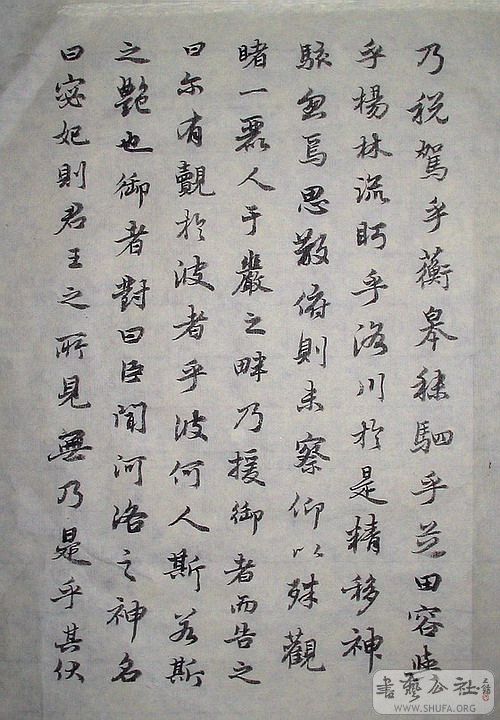 乃税駕乎蘅皋秣駟乎芝田容與
乎楊林流眄乎洛川於是精移神
駭忽焉思散俯則未察仰以殊觀
睹一麗人于巖之畔乃援御者而告之
曰尔有覿於彼者乎彼何人斯若斯
之艷也御者對曰臣聞河洛之神名
曰宓妃則君王之所見無乃是乎其
書藝公社
WWW.SHUFA.ORG